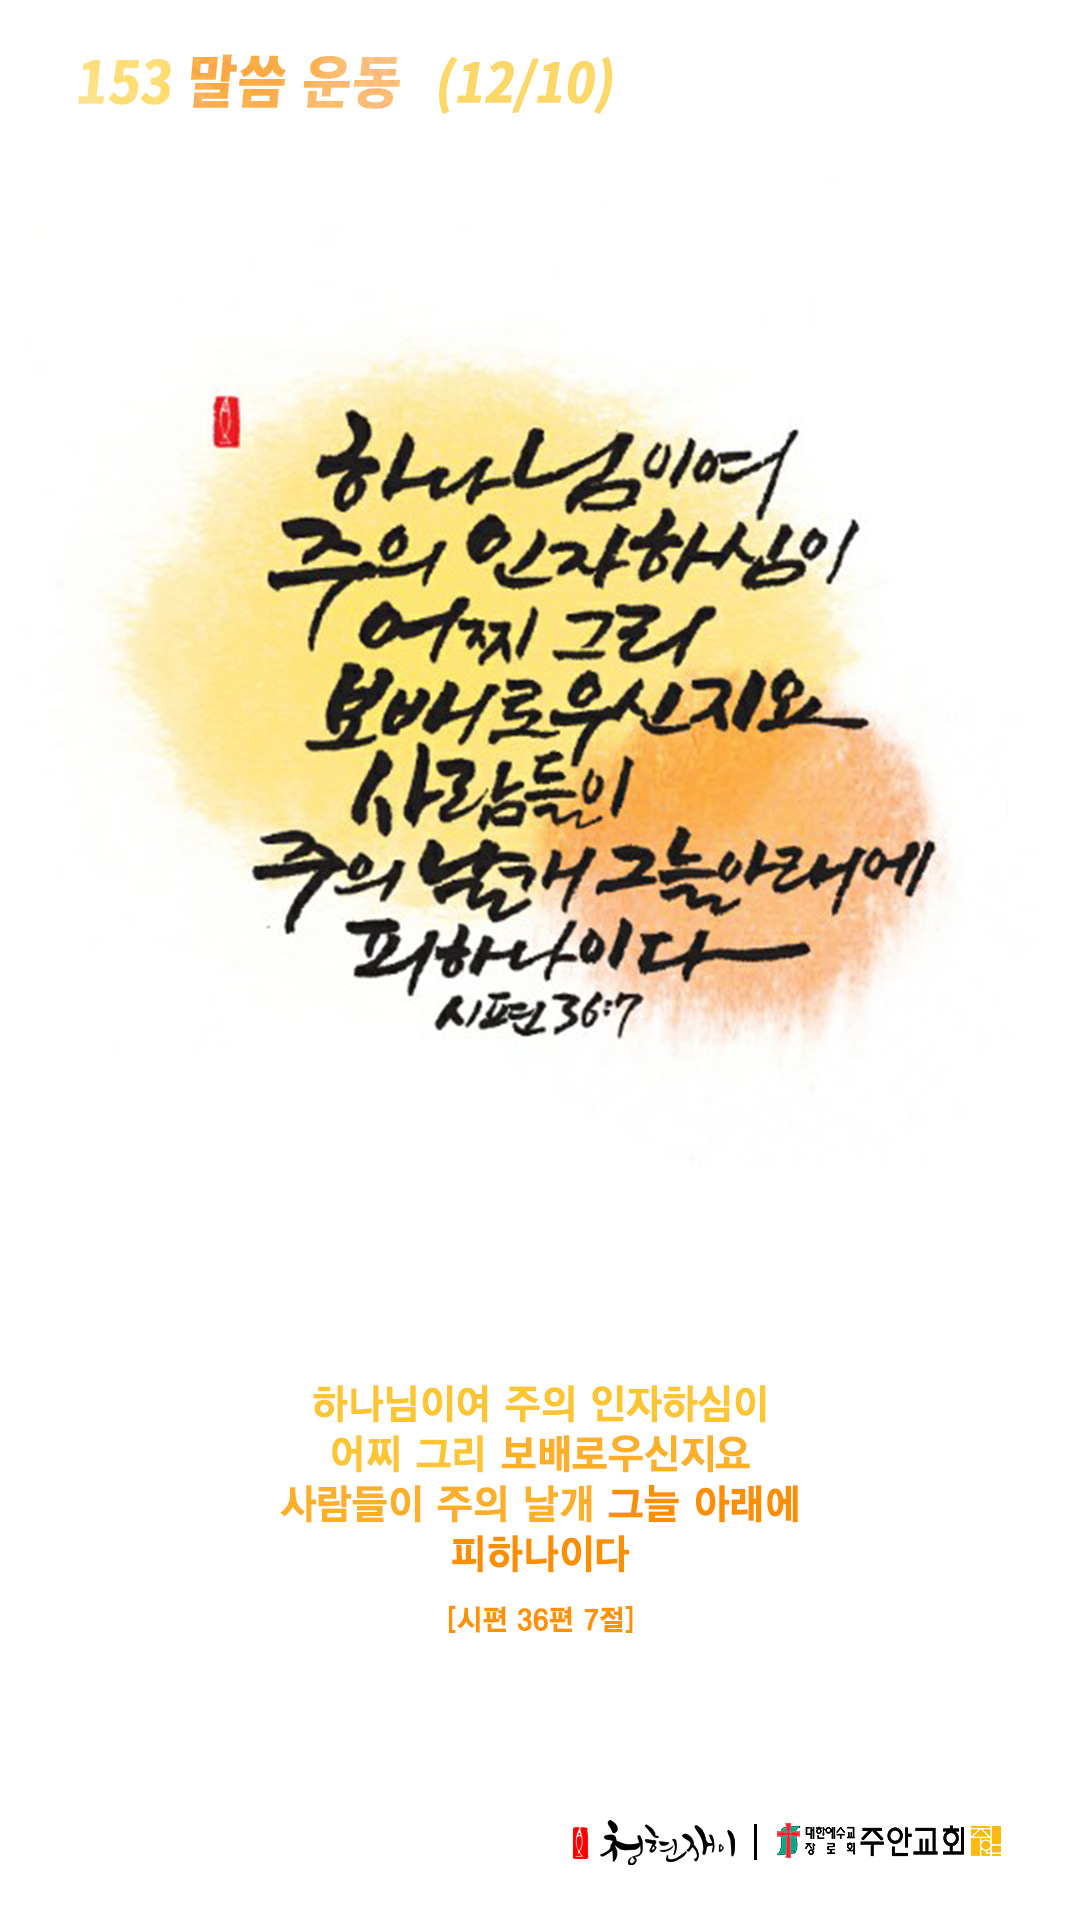 153 말씀 운동 (12/10)
하나님이여
주의 인자하심이
어찌 그리
보배로우신지요
사람들이
주의 날개 그늘아래에
피하나이다
시편 36:7
하나님이여 주의 인자하심이
어찌 그리 보배로우신지요
사람들이 주의 날개 그늘 아래에
피하나이다
[시편 36편 7절]
청현재이 | 대한예수교 장로회 주안교회